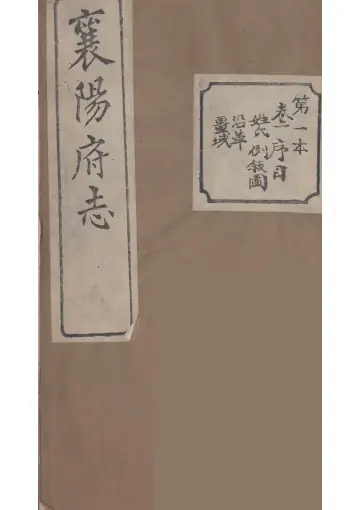 襄陽府志
第一本
卷一序目
姓氏例敘圖
沿革
疆域